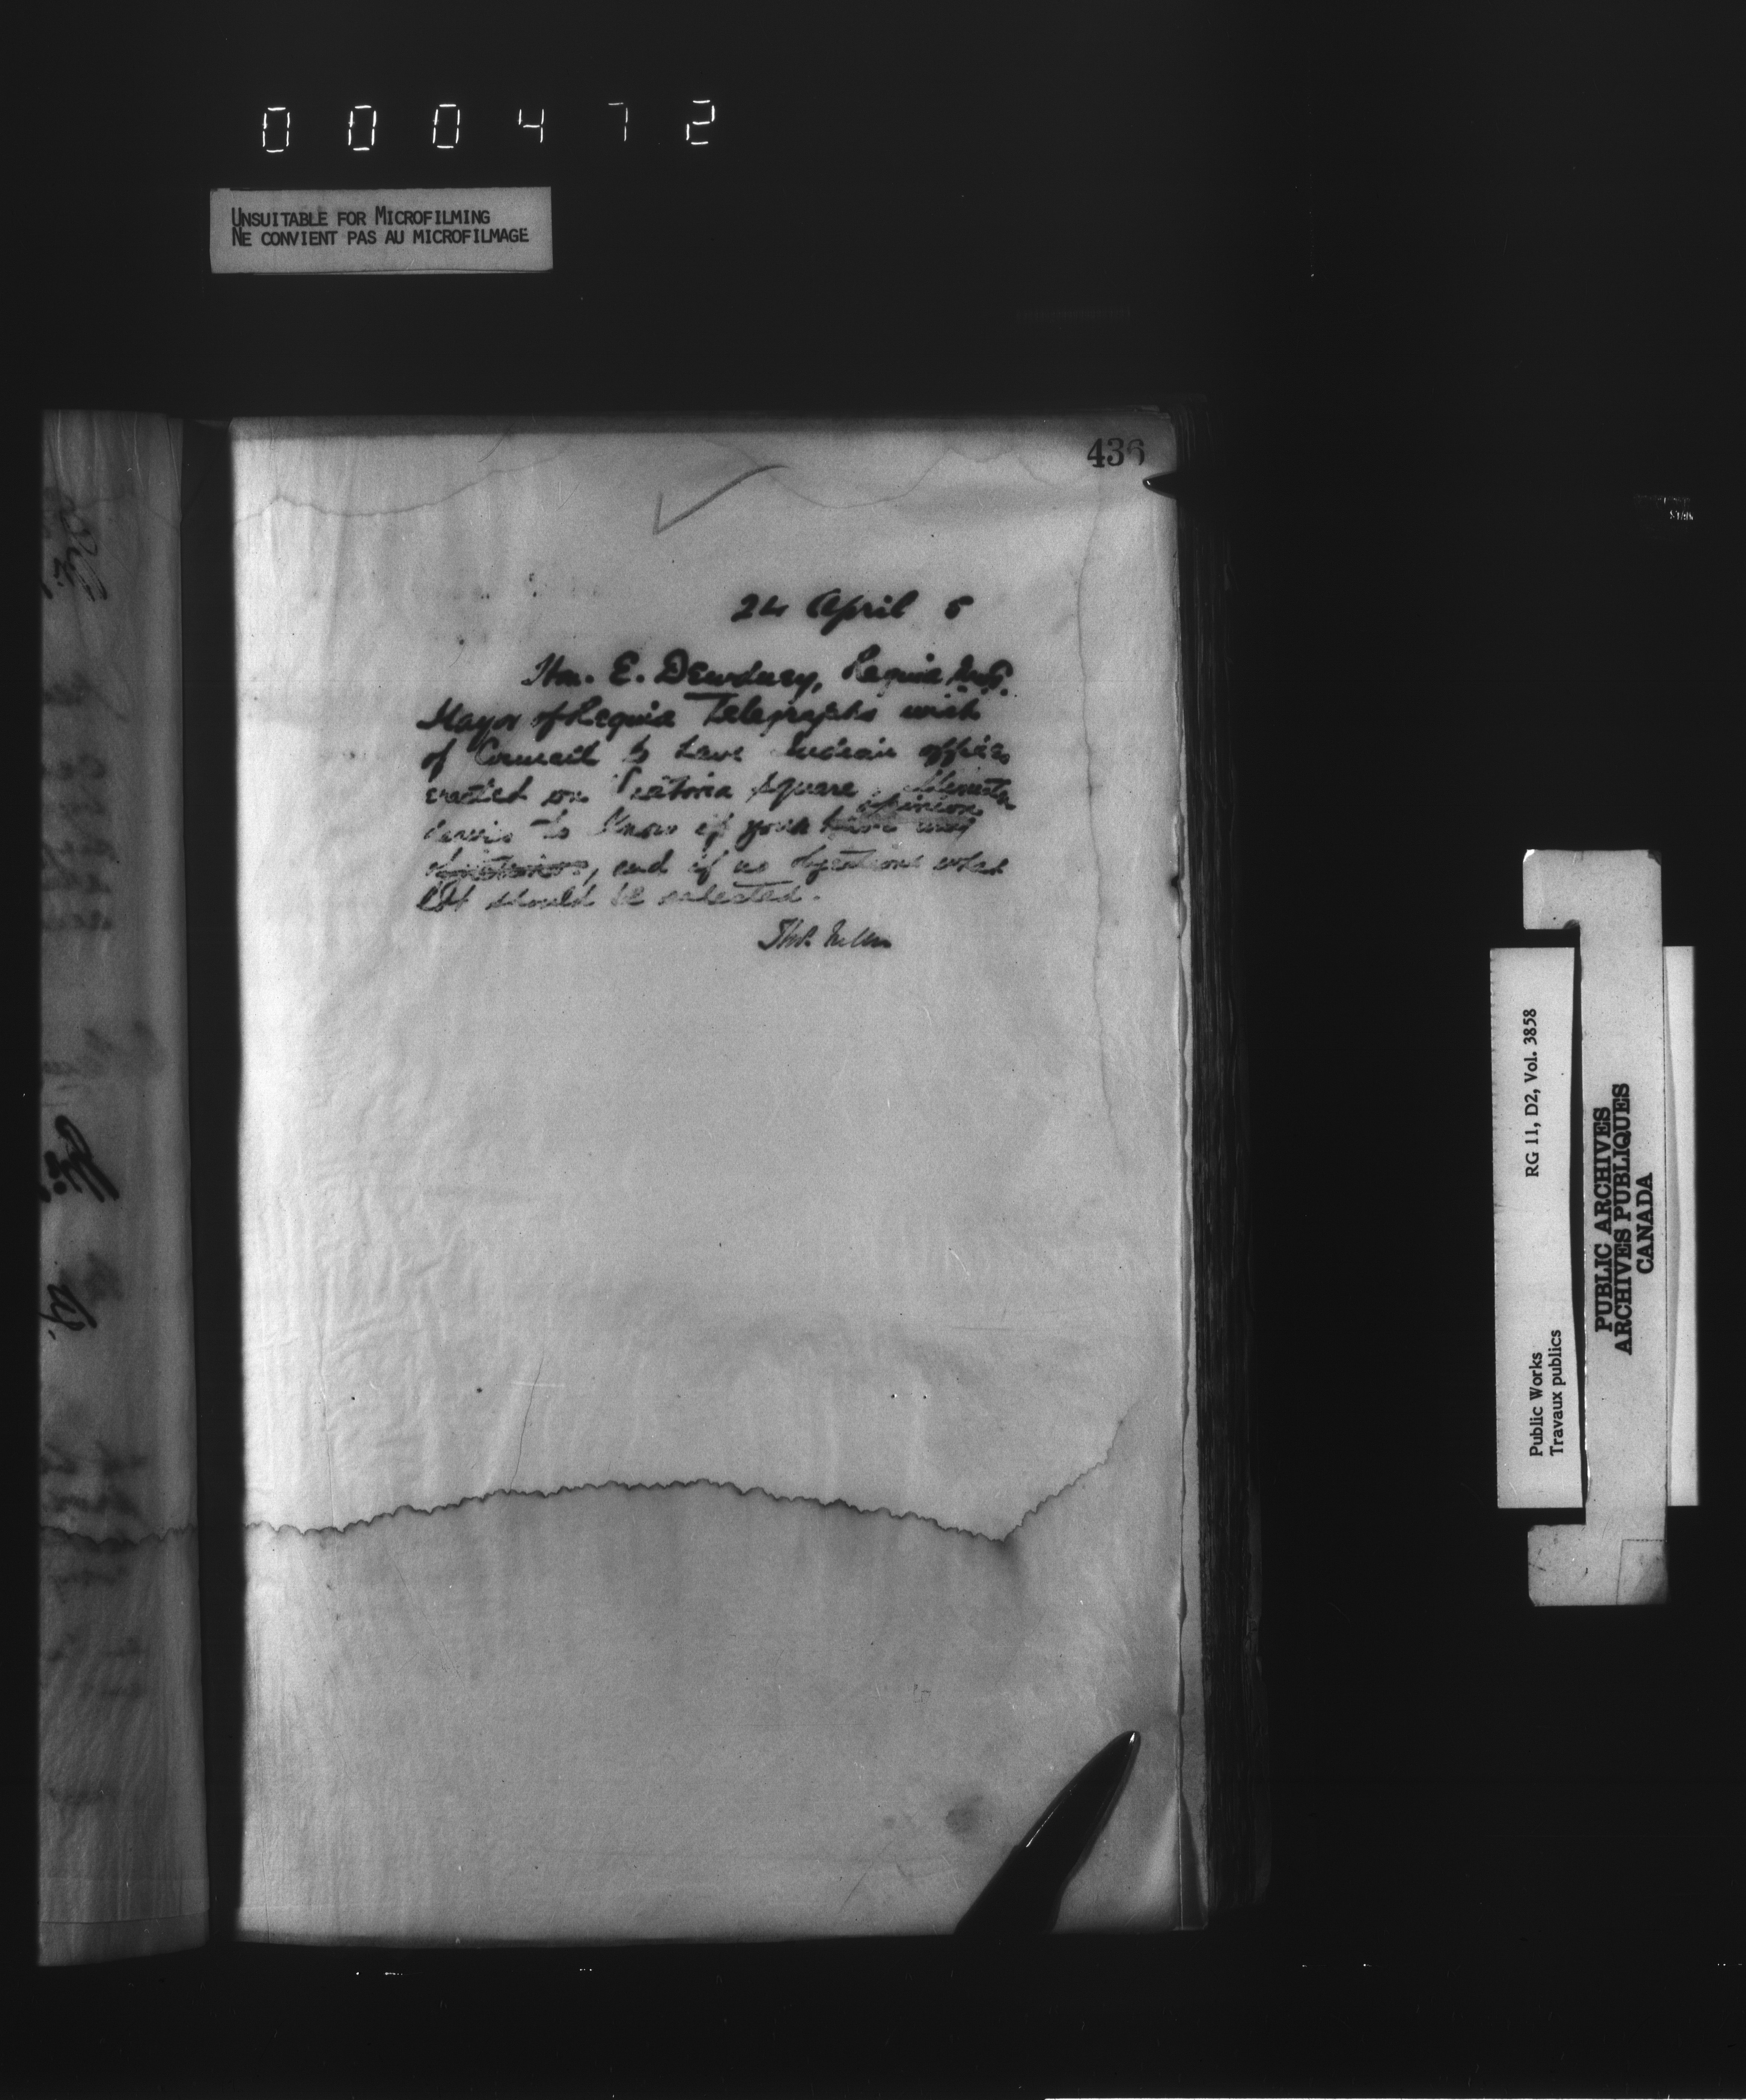 000472
UNSUITABLE FOR MICROFILMING
NE CONVIENT PAS AU MICROFILMAGE
436
24 April 5
Hon. E. Dewdney, Regina
Mayor of Regina Telegraphs wish
of Council to have Indian office
erected on Victoria Square. Minister
opinion
desires to know if your have any
objections, and if no objections what
lot should be selected.
RG 11, D2, Vol. 3858
Public Works
Travaux publics
PUBLIC ARCHIVES
ARCHIVES PUBLIQUES
CANADA